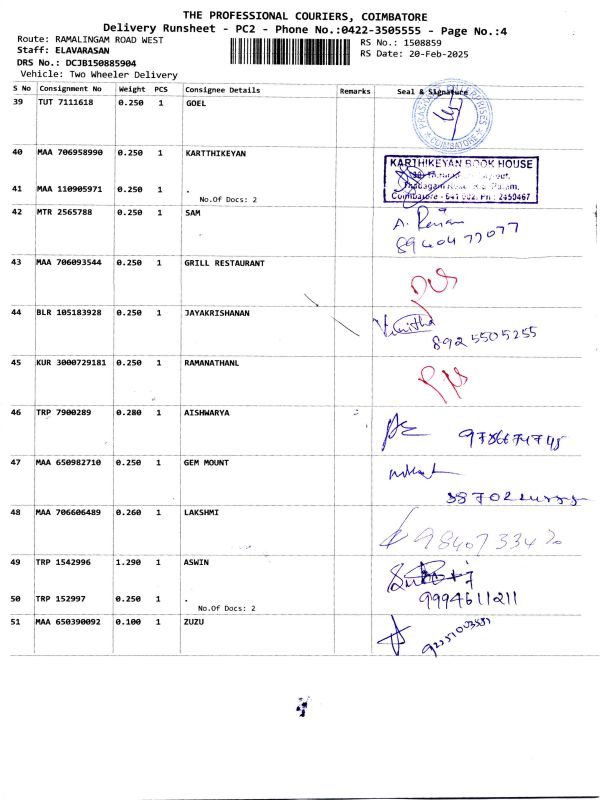 THE PROFESSIONAL COURIERS, COIMBATORE
Delivery Runsheet - PC2 - Phone No.:0422-3505555 - Page No.:4
Route: RAMALINGAM ROAD WEST
RS No.: 1508859
Staff: ELAVARASAN
RS Date: 20-Feb-2025
DRS No.: DCJB150885904
Vehicle: Two Wheeler Delivery
S No Consignment No Weight PCS Consignee Details Remarks Seal & Signature
39 TUT 7111618 0.250 1 GOEL
COIMBATORE
40 MAA 706958990 0.250 1 KARTTHIKEYAN
KARTHIKEYAN BOOK HOUSE
41 MAA 110905971 0.250 1 .
No.Of Docs: 2
Coimbatore - 641 002. Ph : 2450467
42 MTR 2565788 0.250 1 SAM
A.
8940477077
43 MAA 706093544 0.250 1 GRILL RESTAURANT
44 BLR 105183928 0.250 1 JAYAKRISHANAN
Vanitha
8925505255
45 KUR 3000729181 0.250 1 RAMANATHANL
46 TRP 7900289 0.280 1 AISHWARYA
47 MAA 650982710 0.250 1 GEM MOUNT
48 MAA 706606489 0.260 1 LAKSHMI
9840733420
49 TRP 1542996 1.290 1 ASWIN
50 TRP 152997 0.250 1 .
No.Of Docs: 2
9994611211
51 MAA 650390092 0.100 1 ZUZU